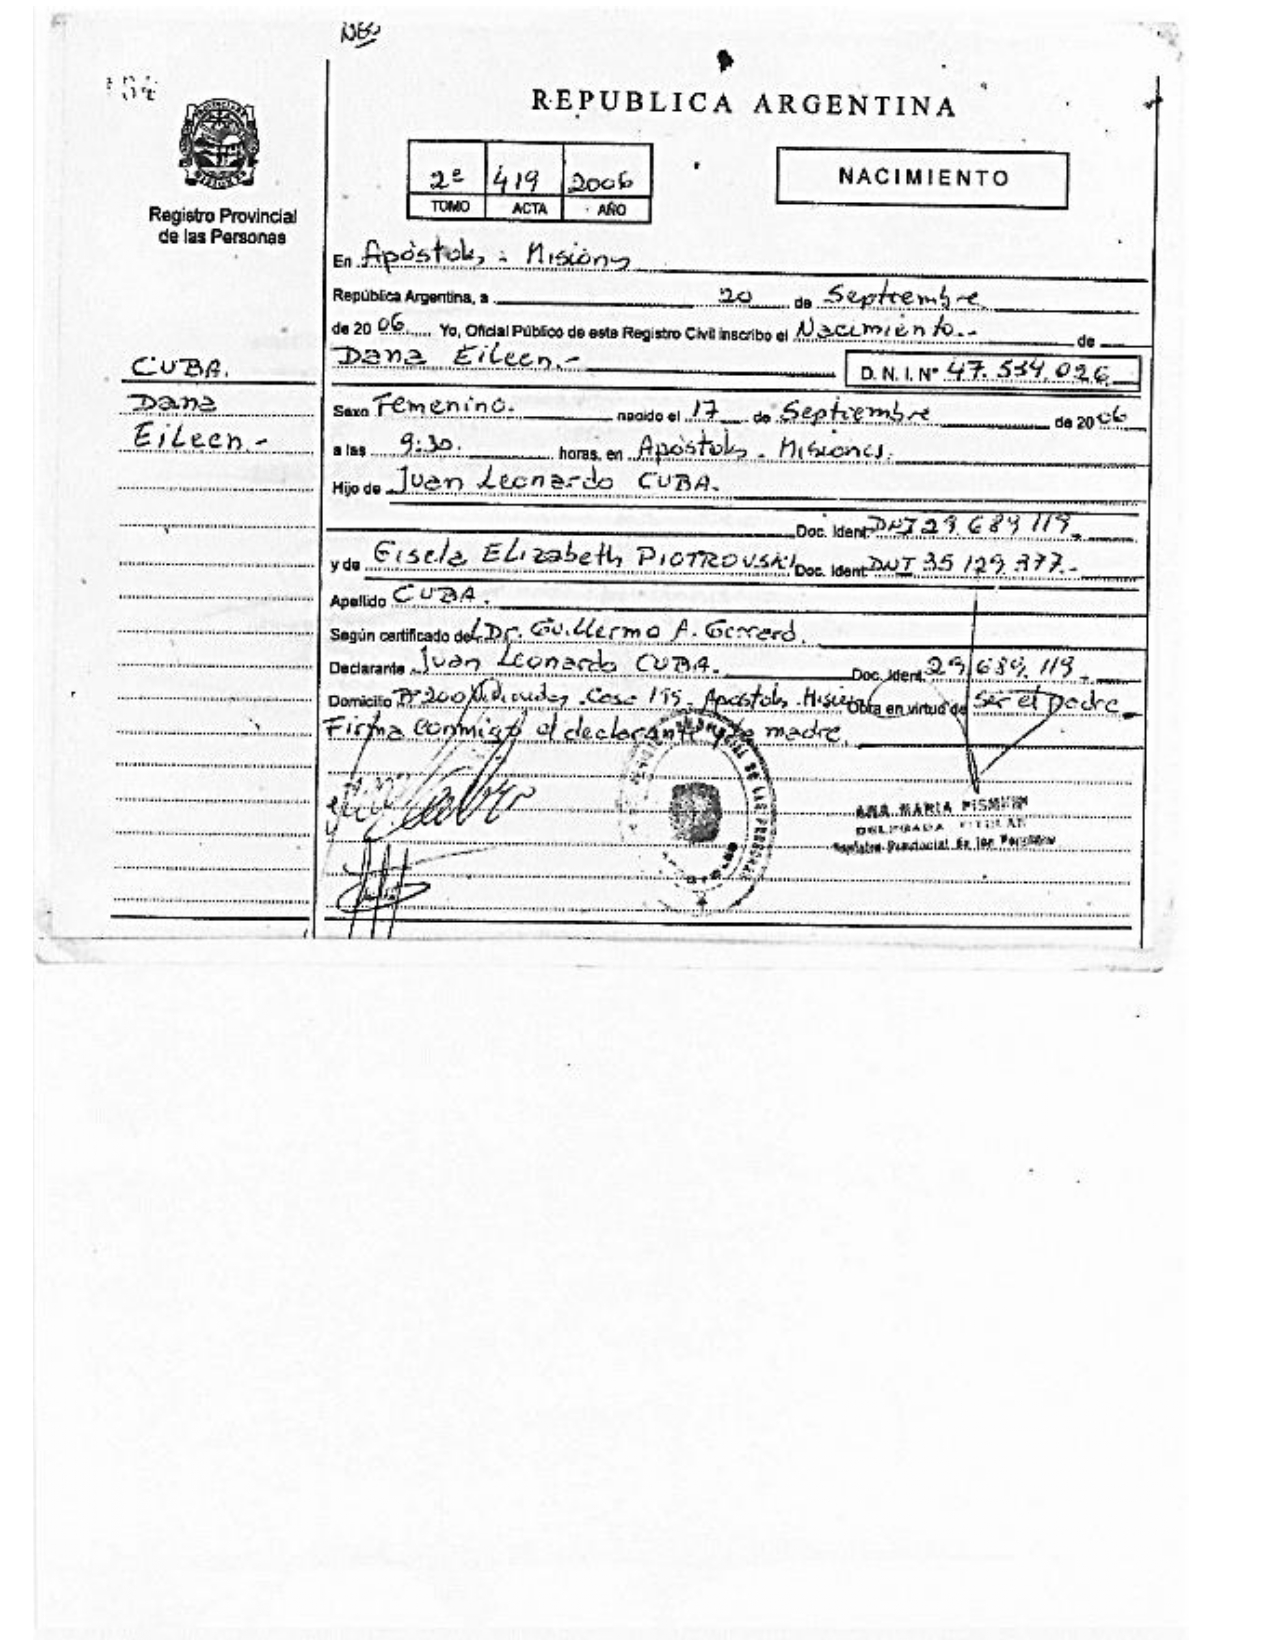 REPUBLICA ARGENTINA
Registro Provincial
de las Personas
2º 419 2006
TOMO ACTA AÑO
NACIMIENTO
CUBA.
Dana
Eileen.-
En Apóstoles - Misiones
República Argentina, a 20 de Septiembre
de 2006 Yo, Oficial Público de este Registro Civil inscribo el Nacimiento.- de
Dana Eileen.- D. N. I. Nº 47.534.026
Sexo Femenino. nacido el 17 de Septiembre de 2006
a las 9:30. horas, en Apóstoles - Misiones.
Hijo de Juan Leonardo CUBA.
Doc. Ident. DNI 29.689.119.
y de Gisela Elizabeth PIOTROVSKI Doc. Ident. DNI 35.129.377.-
Apellido CUBA.
Según certificado del Dr. Guillermo A.
Declarante Juan Leonardo CUBA. Doc. Ident. 29.689.119.
Domicilio 200 Viviendas Casa Apóstoles Misiones Obra en virtud de Ser el Padre
Firma conmigo el declarante y la madre.
DE LAS PERSONAS
ANA MARIA
DELEGADA TITULAR
Registro Provincial de las Personas